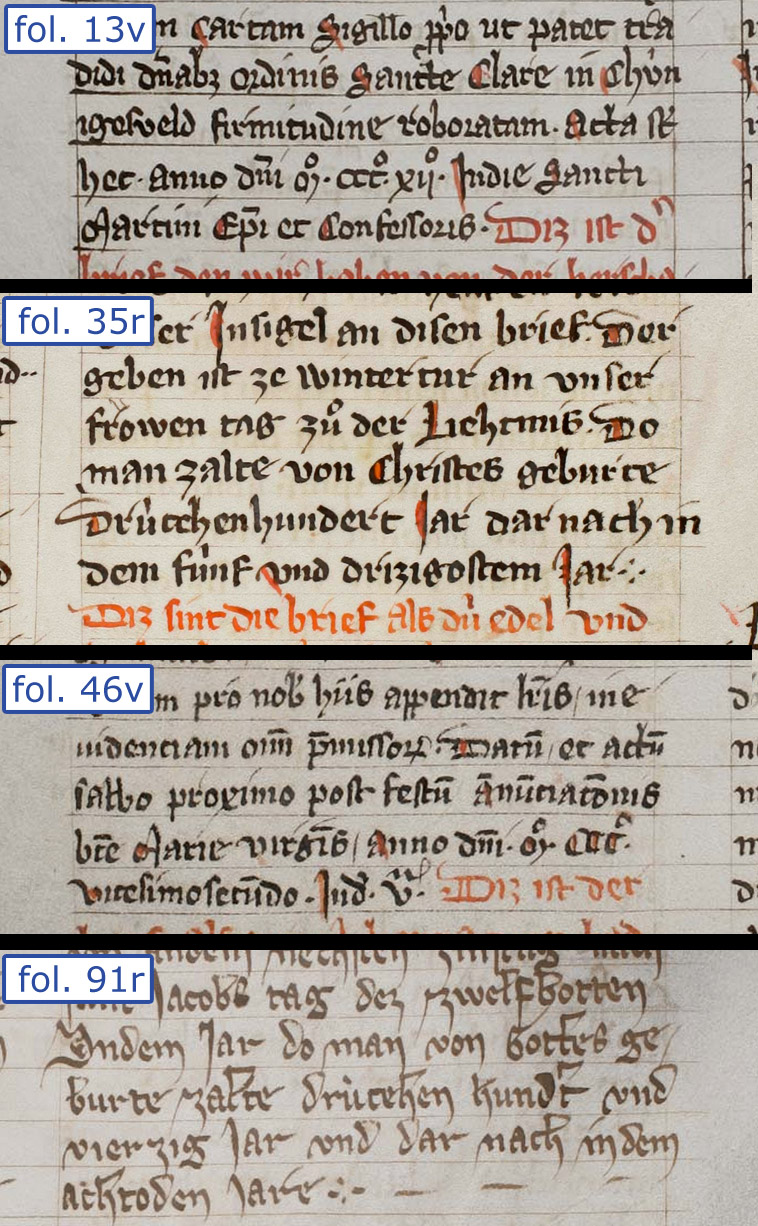 fol. 13v
n cartam Sigillo pp̃o ut patet t̃ra
didi dn̄abꝫ ordinis Sancte Clare in Chv́n
igesveld firmitudine roboratam. Acta st̃
hec. anno dn̄i mͦ. cccͦ. xijͦ. Indie Sancti
Martini Ep̄i et Confessoris. Diz ist d
brief den wir haben von der hersche
fol. 35r
ser Insigel an disen brief. Der
geben ist ze wintertur an vnser
frowen tag zuͦ der Liehtmis. Do
man zalte von Christes geburte
Drùcehenhundert Jar dar nach in
dem fùnf vnd drizigostem Jar
Diz sint die brief als dù edel vnd
fol. 46v
m pro nob̄ hiis appendit lr̄is / in e
uidenciam om̄i p̄missoꝝ. Datū / et actū
sabbo proximo post festū ānūciatōnis
bt̄e Marie virgīs / anno dn̄i. mͦ. CCCͦ.
vicesimosecūdo. Ind. v̊. Diz ist der
fol. 91r
andem nechsten zinstag nach
sant Jacobs tag dez zwelfbotten
Jndem Jar do man von gottes ge
burte zalte drùcehen hundt̃ vnd
vierzig Jar vnd dar nach indem
achtoden Jare